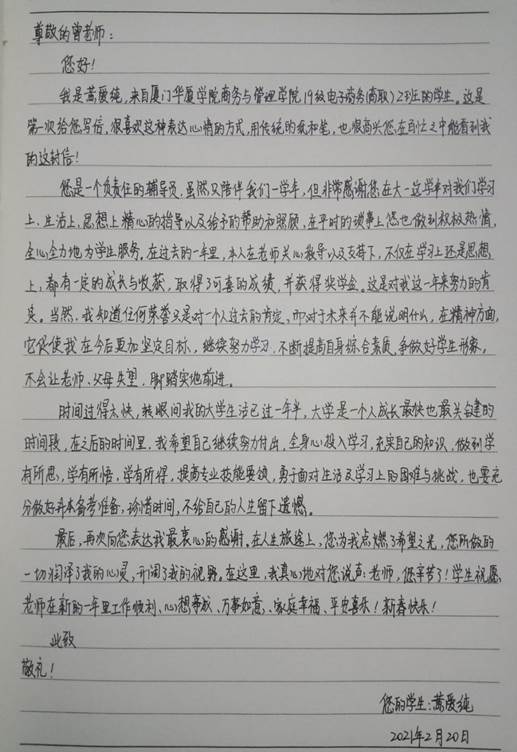 尊敬的曾老师：
您好！
我是蒿爱纯，来自厦门华厦学院商务与管理学院19级电子商务(商取)2班的学生。这是
第一次给您写信，很喜欢这种表达心情的方式，用传统的纸和笔，也很高兴您在百忙之中能看到我
的这封信！
您是一个负责任的辅导员，虽然只陪伴我们一学年，但非常感谢您在大一这学年对我们学习
上、生活上、思想上精心的指导以及给予的帮助和照顾，在平时的琐事上您也做到积极热情，
全心全力地为学生服务。在过去的一年里，本人在老师关心教导以及支持下，不仅在学习上还是思想
上，都有一定的成长与收获，取得了可喜的成绩，并获得奖学金。这是对我这一年来努力的肯
定。当然，我知道任何荣誉只是对一个人过去的肯定，而对于未来并不能说明什么，在精神方面，
它促使我在今后更加坚定目标，继续努力学习，不断提高自身综合素质，争做好学生形象，
不会让老师、父母失望，脚踏实地前进。
时间过得太快，转眼间我的大学生活已过一年半，大学是一个人成长最快也最关键的
时间段，在之后的时间里，我希望自己继续努力付出，全身心投入学习，充实自己的知识，做到学
有所思，学有所悟，学有所得，提高专业技能要领，勇于面对生活及学习上的困难与挑战，也要充
分做好升本备考准备，珍惜时间，不给自己的人生留下遗憾。
最后，再次向您表达我最衷心的感谢。在人生旅途上，您为我点燃了希望之光，您所做的
一切润泽了我的心灵，开阔了我的视野。在这里，我真心地对您说声：老师，您辛苦了！学生祝愿
老师在新的一年里工作顺利、心想事成、万事如意、家庭幸福、平安喜乐！新春快乐！
此致
敬礼！
您的学生：蒿爱纯
2021年2月20日